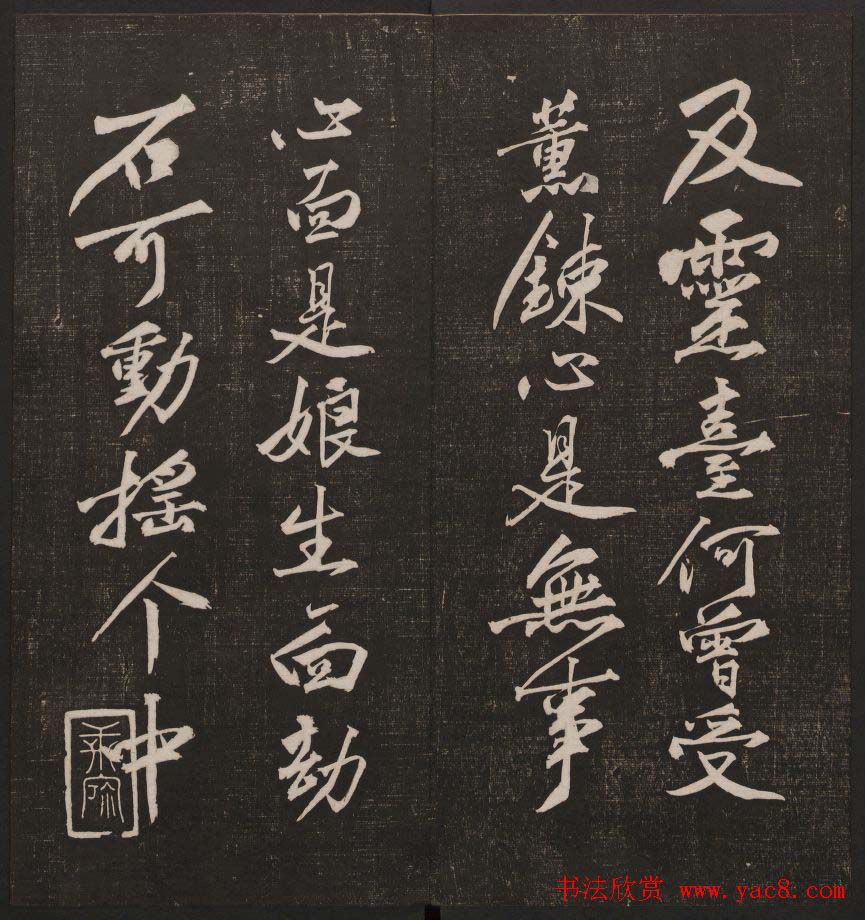 及靈臺何曾受
薰鍊心是無事
心面是娘生面劫
石可動搖个中
書法欣赏 www.yac8.com